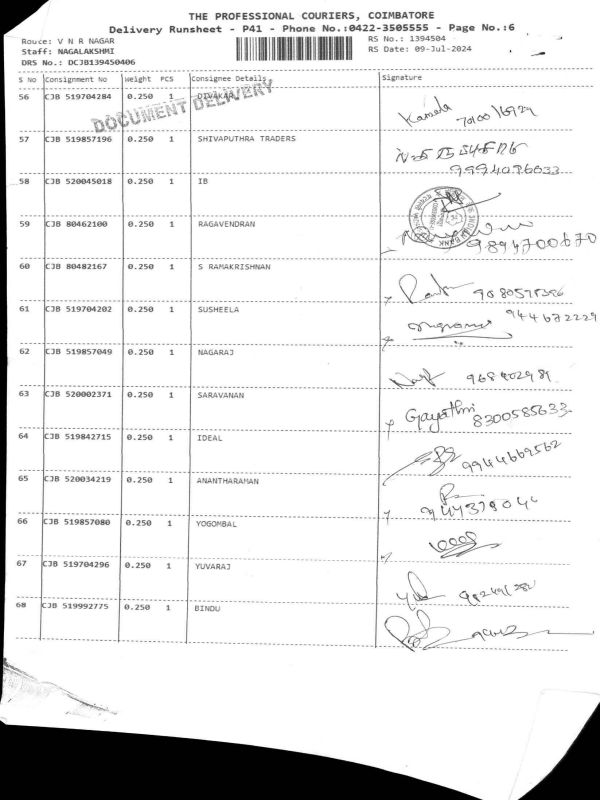 THE PROFESSIONAL COURIERS, COIMBATORE
Delivery Runsheet - P41 - Phone No.:0422-3505555 - Page No.:6
Route: V N R NAGAR
RS No.: 1394504
Staff: NAGALAKSHMI
RS Date: 09-Jul-2024
DRS No.: DCJB139450406
S No Consignment No Weight PCS Consignee Details Signature
56 CJB 519704284 0.250 1 DIVAKAR Kamala
DOCUMENT DELIVERY
57 CJB 519857196 0.250 1 SHIVAPUTHRA TRADERS
58 CJB 520045018 0.250 1 IB
59 CJB 80462100 0.250 1 RAGAVENDRAN 9894700670
60 CJB 80482167 0.250 1 S RAMAKRISHNAN
61 CJB 519704202 0.250 1 SUSHEELA
62 CJB 519857049 0.250 1 NAGARAJ
63 CJB 520002371 0.250 1 SARAVANAN Gayathri 8300585633
64 CJB 519842715 0.250 1 IDEAL 9944669562
65 CJB 520034219 0.250 1 ANANTHARAMAN
66 CJB 519857080 0.250 1 YOGOMBAL
67 CJB 519704296 0.250 1 YUVARAJ
68 CJB 519992775 0.250 1 BINDU